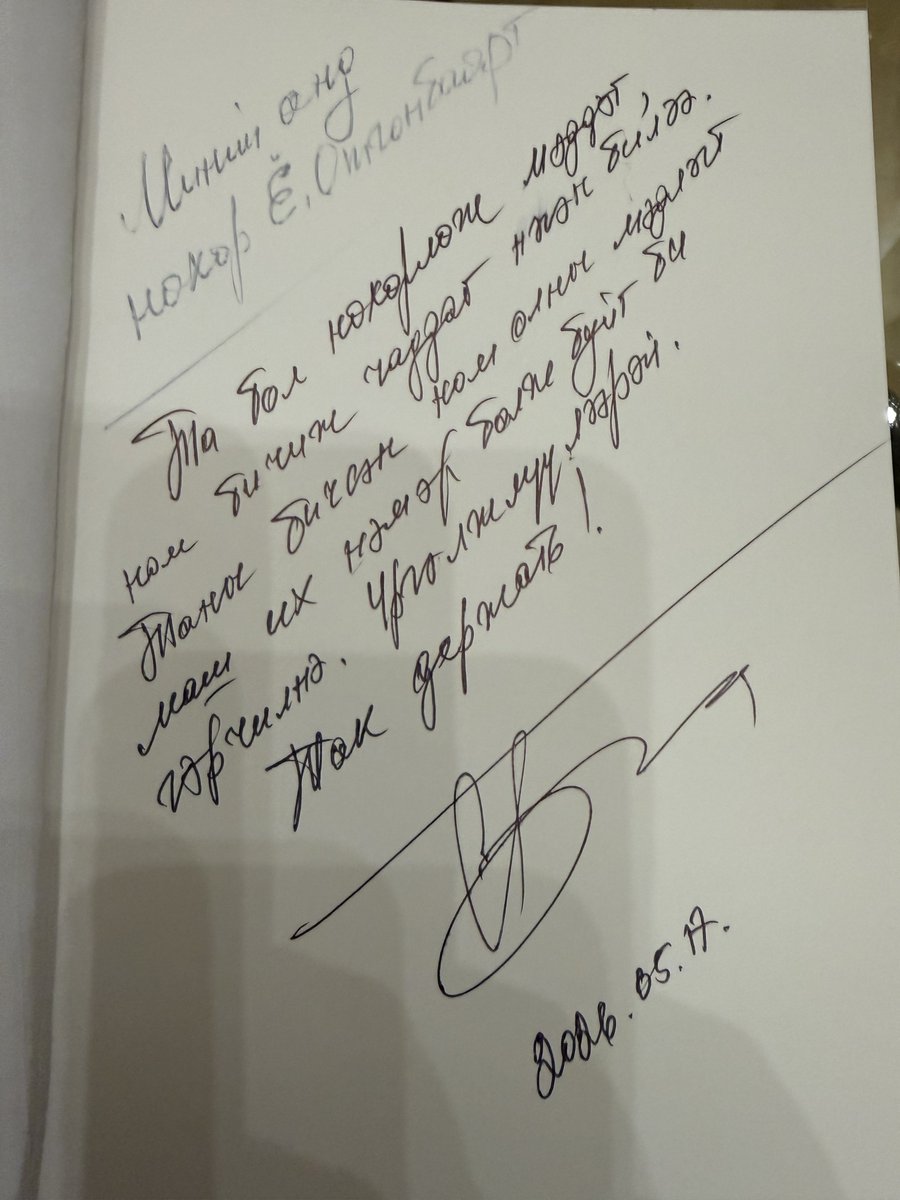 Миний анд
нөхөр Ё.Отгонбаярт
Та бол нөхөрлөж мэддэг,
ном бичиж чаддаг нэгэн билээ.
Таны бичсэн ном олны мэдлэгт
маш их нэмэр болж буйг би
гэрчилнэ. Үргэлжлүүлээрэй.
Так держать!
2026.05.17.